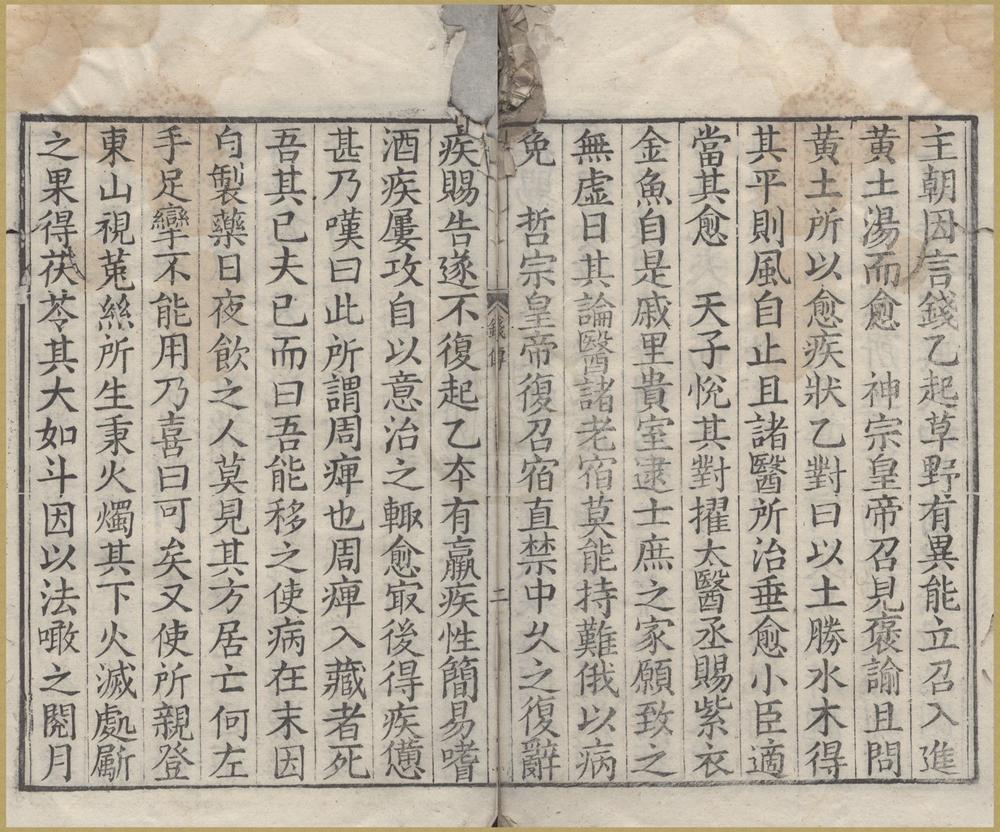 主朝因言錢乙起草野有異能立召入進
黃土湯而愈　神宗皇帝召見褒諭且問
黃土所以愈疾狀乙對曰以土勝水木得
其平則風自止且諸醫所治垂愈小臣適
當其愈　天子悅其對擢太醫丞賜紫衣
金魚自是戚里貴室逮士庶之家願致之
無虛日其論醫諸老宿莫能持難俄以病
免　哲宗皇帝復召宿直禁中乆之復辭
錢傳
二
疾賜告遂不復起乙夲有羸疾性簡易嗜
酒疾屢攻自以意治之輙愈㝡後得疾憊
甚乃嘆曰此所謂周痺也周痺入藏者死
吾其已夫已而曰吾能移之使病在末因
自製藥日夜飲之人莫見其方居亡何左
手足攣不能用乃喜曰可矣又使所親登
東山視菟絲所生秉火燭其下火滅處斸
之果得茯苓其大如斗因以法噉之閱月